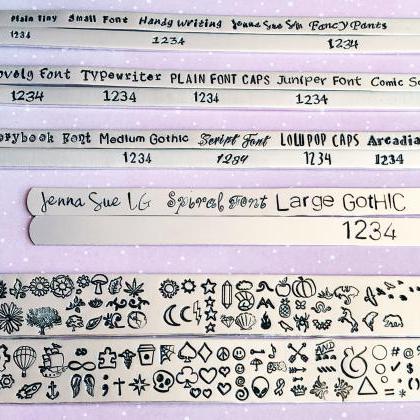 Plain Tiny Small Font Handy Writing Jenna Sue Sm Fancy Pants
1234 1234 1234
ovely Font Typewriter PLAIN FONT CAPS Juniper Font Comic S
1234 1234 1234 1234
orybook Font Medium Gothic Script Font LOLLIPOP CAPS Arcadia
1234 1234 1234 1234
Jenna Sue LG Spiral Font Large GotHIC
1234